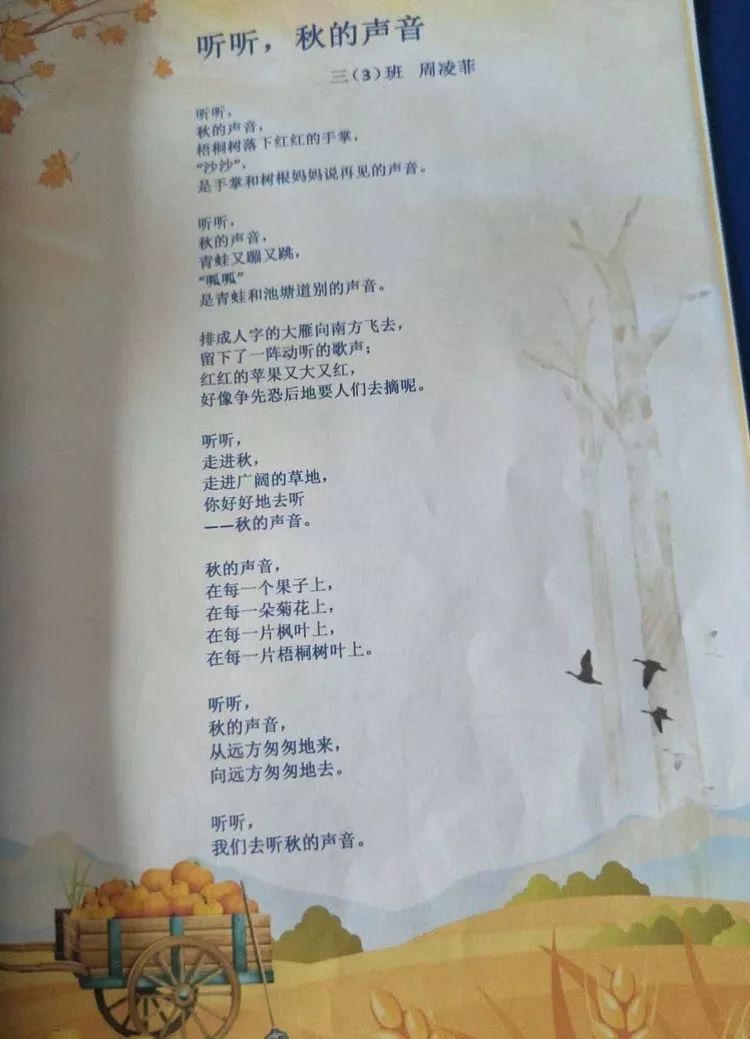 听听，秋的声音
三（3）班 周凌菲
听听，
秋的声音，
梧桐树落下红红的手掌，
“沙沙”，
是手掌和树根妈妈说再见的声音。
听听，
秋的声音，
青蛙又蹦又跳，
“呱呱”
是青蛙和池塘道别的声音。
排成人字的大雁向南方飞去，
留下了一阵动听的歌声；
红红的苹果又大又红，
好像争先恐后地要人们去摘呢。
听听，
走进秋，
走进广阔的草地，
你好好地去听
——秋的声音。
秋的声音，
在每一个果子上，
在每一朵菊花上，
在每一片枫叶上，
在每一片梧桐树叶上。
听听，
秋的声音，
从远方匆匆地来，
向远方匆匆地去。
听听，
我们去听秋的声音。